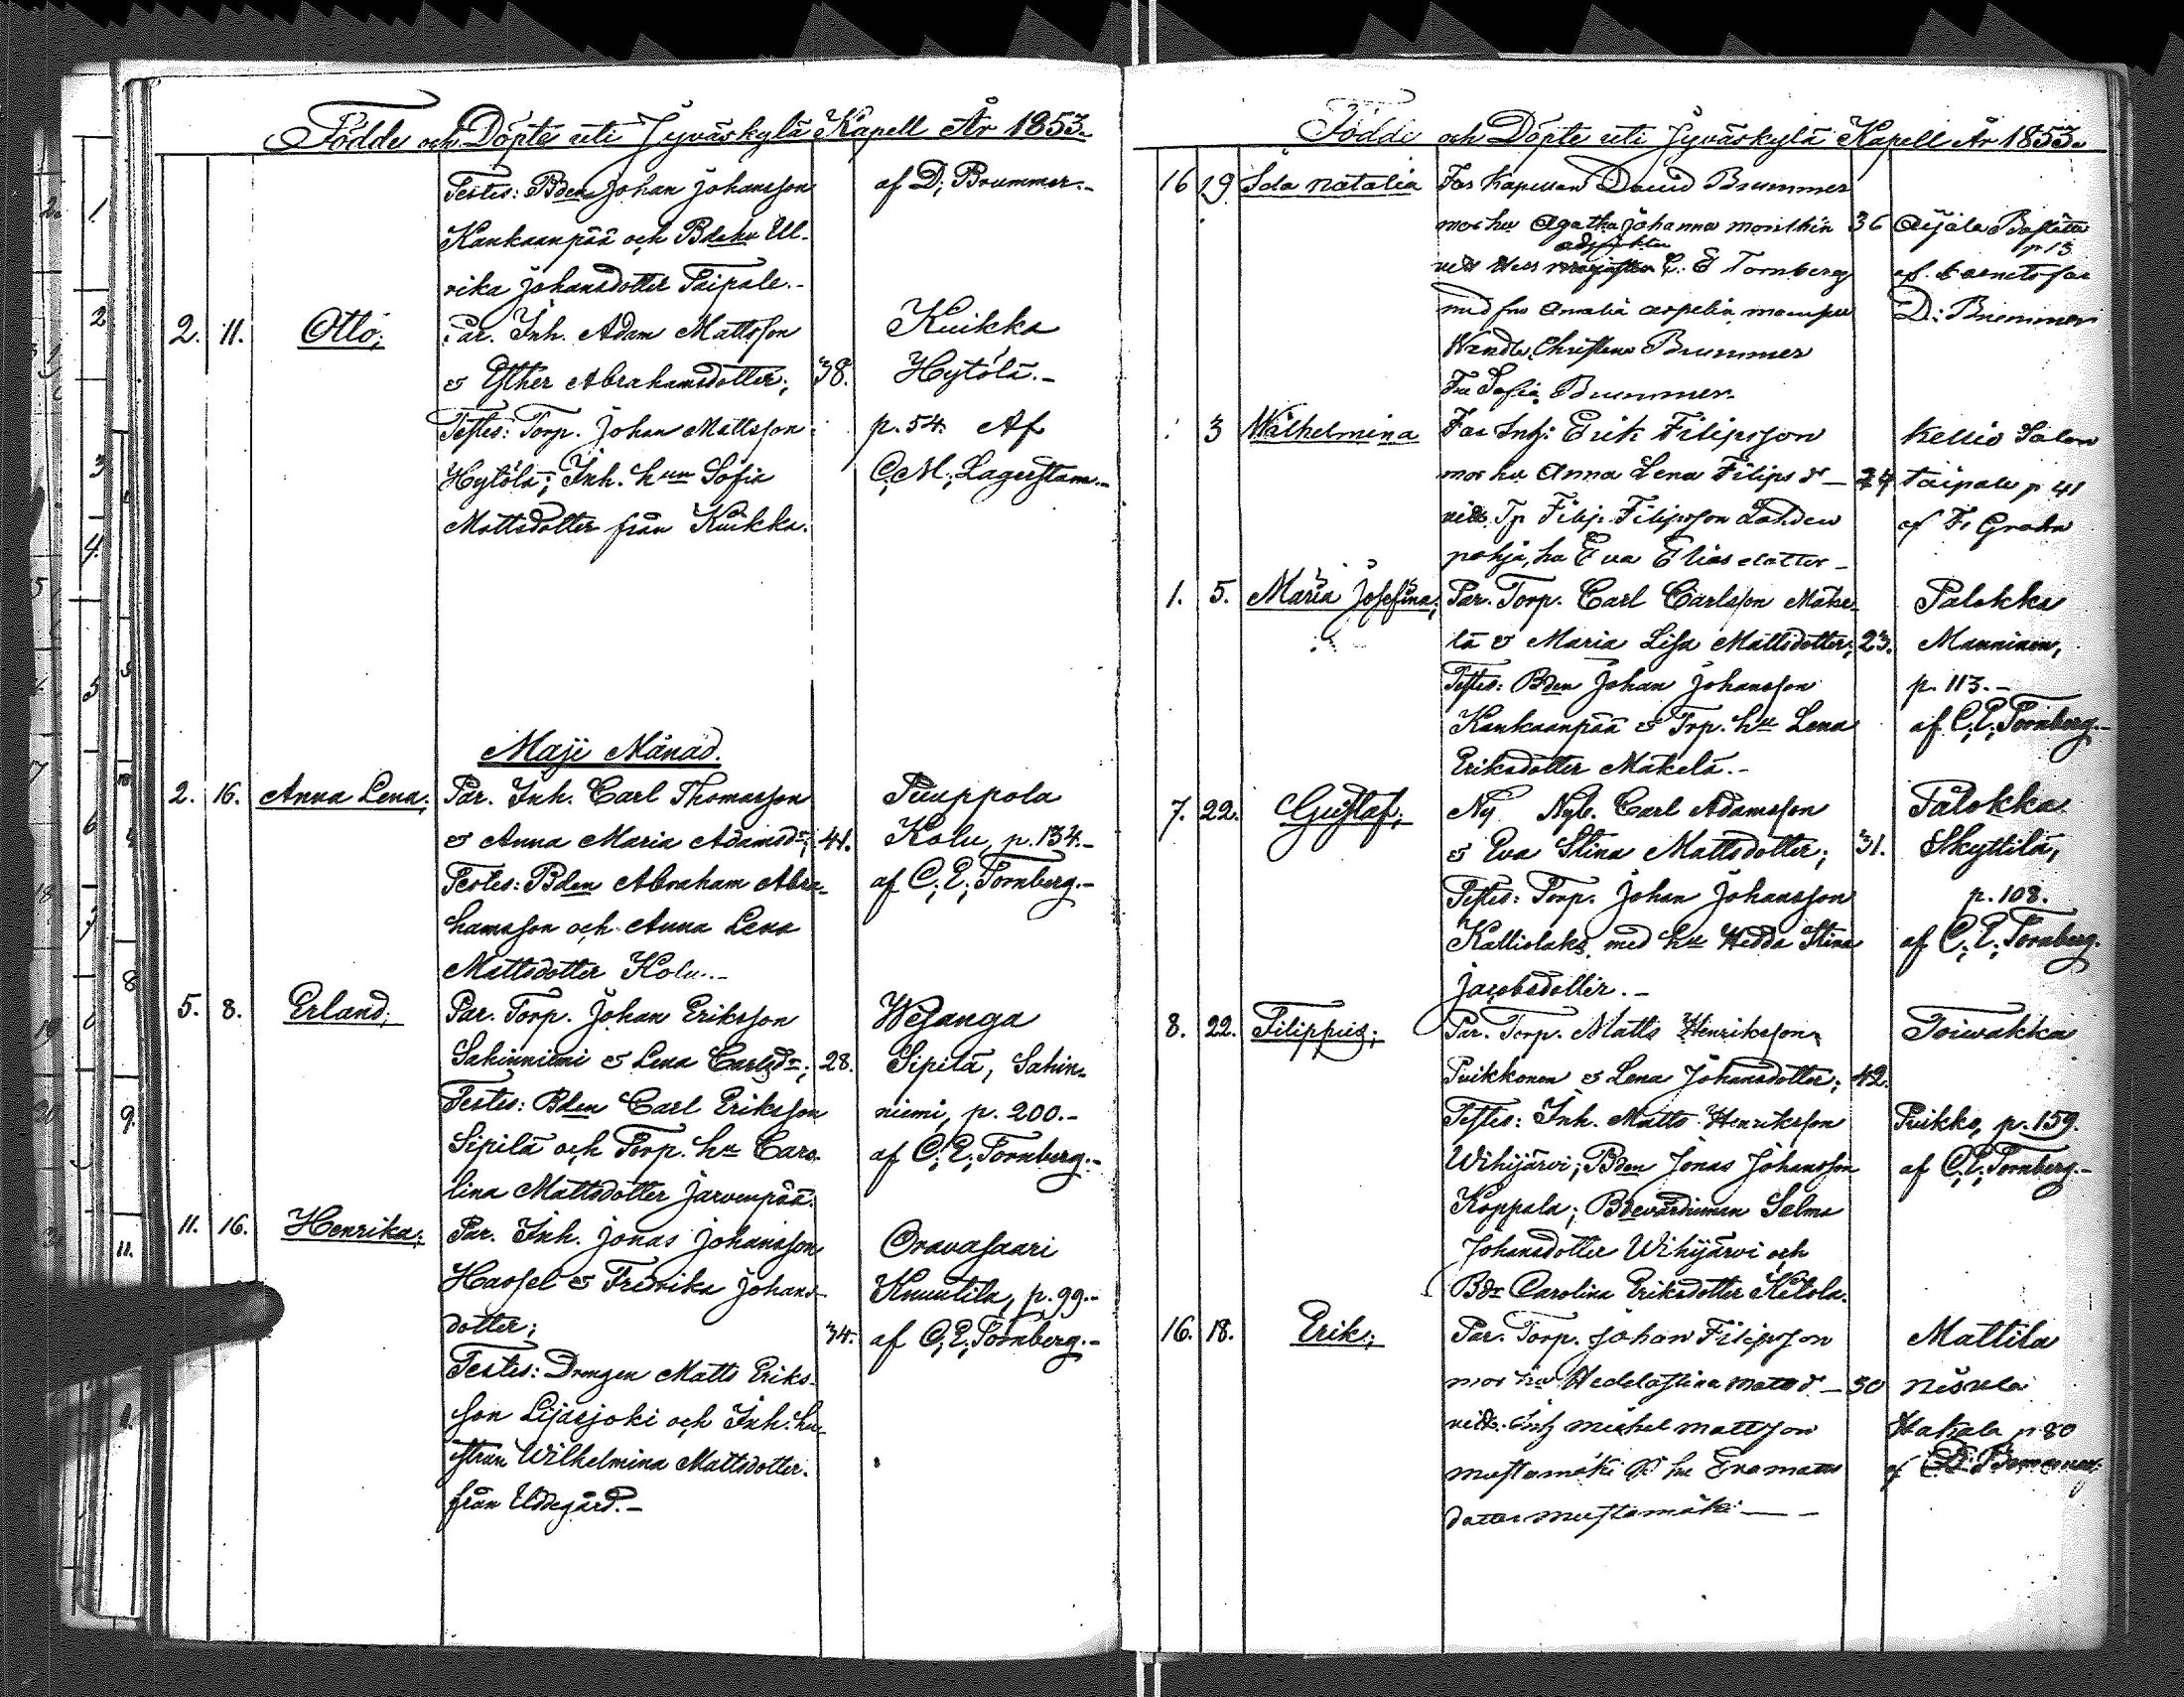 Födde och Döpte uti Jyväskylä Kapell År 1853.
Testes: Bden Johan Johansson af D; Brummer.-
Kankaanpää och Bdehu Ul-
rika Johansdotter Taipale.-
2. 11. Otto; Par. Inh. Adam Mattsson Kuikka
& Esther Abrahamsdotter; 38. Hytölä.-
Testes: Torp. Johan Mattsson p. 54. Af
Hytölä; Inh. hun Sofia C; M; Lagerstam.-
Mattsdotter från Kuikka.
Maji Månad.
2. 16. Anna Lena; Par. Inh. Carl Thomasson Puuppola
& Anna Maria Adamsdr; 41. Kolu, p. 134.-
Testes: Bden Abraham Abra- af C; E; Tornberg.-
hamsson och Anna Lena
Mattsdotter Kolu.-
5. 8. Erland; Par. Torp. Johan Eriksson Wesanga
Sahinniemi & Lena Carlsdr; 28. Sipilä, Sahin-
Testes: Bden Carl Eriksson niemi, p. 200.-
Sipilä och Torp. hu Caro- af C; E; Tornberg.-
lina Mattsdotter Jarvenpää.
11. 16. Henrika; Par. Inh. Jonas Johansson Oravasaari
Hassel & Fredrika Johans- Knuutila, p. 99.-
dotter; 34. af C; E; Tornberg.-
Testes: Drengen Matts Eriks-
son Lijasjoki och Inh. hu-
strun Wilhelmina Mattsdotter
från Uddegård.-
Födde och Döpte uti Jyväskylä Kapell År 1853.
16 19 Ida Natalia Far Kapellan David Brummer
mor hu Agatha Johanna 36 Äijälä
adjunkten p 13
C. E Tornberg af barnets far
med fru Amalia Aspelin D: Brummer
Wendla Christina Brummer
Fru Sofia Brummer.
3 Wilhelmina Far Inh: Erik Filipsson
mor hu Anna Lena Filips d — 24 Taipale p 41
Tp Filip Filipsson Lahden af F. Grahn
pohja, hu Eva Elias dotter -
1. 5. Maria Josefina; Par. Torp. Carl Carlsson Mäke- Palokka
lä & Maria Lisa Mattsdotter; 23. Manninen,
Testes: Bden Johan Johansson p. 113.-
Kankaanpää & Trp. hu Lena af C; E; Tornberg.-
Eriksdotter Mäkelä.-
7. 22. Gustaf; Nyb. Carl Adamsson Palokka
& Eva Stina Mattsdotter; 31. Skyttilä,
Testes: Torp. Johan Johansson p. 108.
Kalliolaks, med hu Hedda Stina af C; E; Tornberg.
Jacobsdotter.-
8. 22. Filippus; Par. Torp. Matts Henriksson Toiwakka
Puikkonen & Lena Johansdotter; 42.
Testes: Inh. Matts Henriksson Puikko, p. 159.
Wihijärvi; Bden Jonas Johansson af C; E; Tornberg.-
Koppala; Selma
Johansdotter Wihijärvi och
Bdr Carolina Eriksdotter Ketola.
16. 18. Erik; Par. Torp. Johan Filipsson Mattila
mor hu Hedda Stina Mattsd — 30 Niskla
Inh Michel Mattsson Hakala p 80
Mustamäki & hu Eva Matts af
dotter Mustamäki —